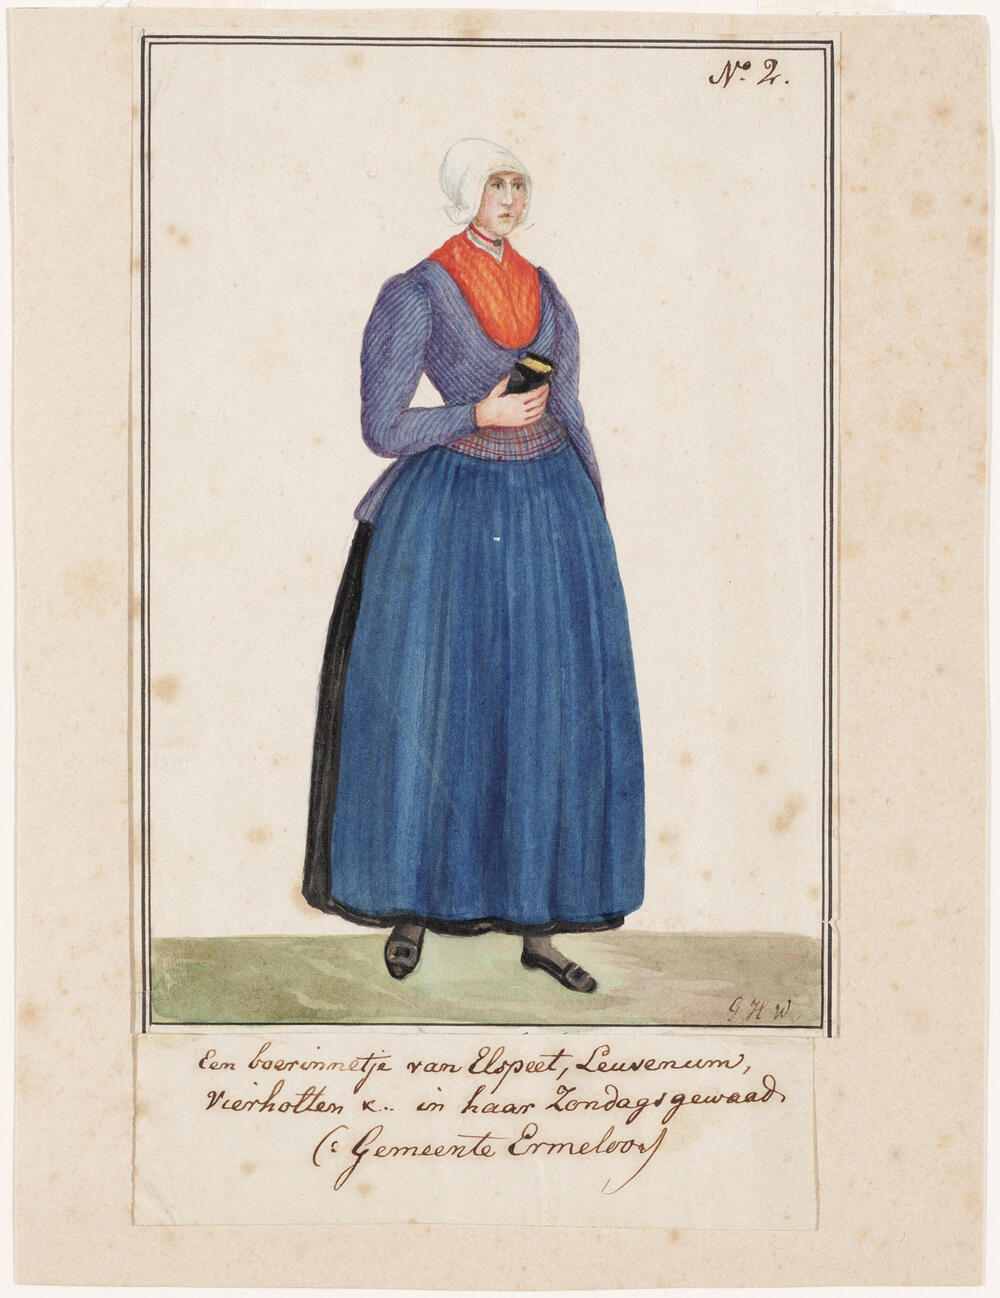 No. 2.
G H W
Een boerinnetje van Elspeet, Leuvenum,
Vierholten &.. in haar Zondagsgewaad.
(: Gemeente Ermeloo:)